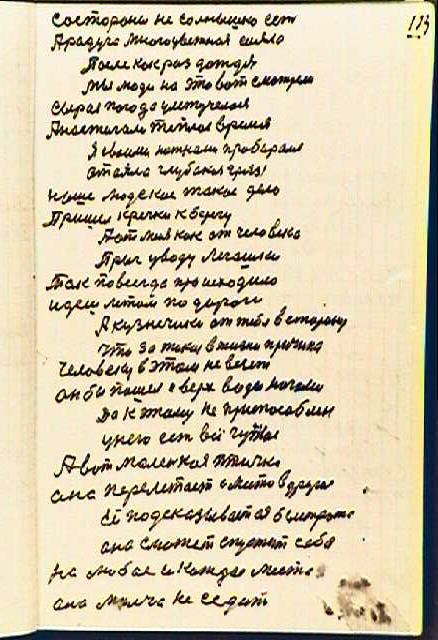 113
состороны не солнышко сет
А радуга многоцветная сияла
После как раз дождя
мы люди на это вот смотрели
Сырая погода улетучелася
А настигала тёплое время
Я своими ногами пробирался
наше людское такое дело
Пришел к речки к берегу
А от меня как от человека
Прыг у воду легашки
Так повсегда происходило
идеш летом по дороги
А кузнечики от тебя в сторону
что за така в жизни причина
Человеку в этом не везет
он бы пошел с верх воды ногами
Да к этому не приспособлен
у него ест всё чутвы
А вот маленкая птичка
она перелетает с места в другое
Ей подсказывает ся быстрота
она сможет спустит себя
на любае и каждое места
она молча не седит